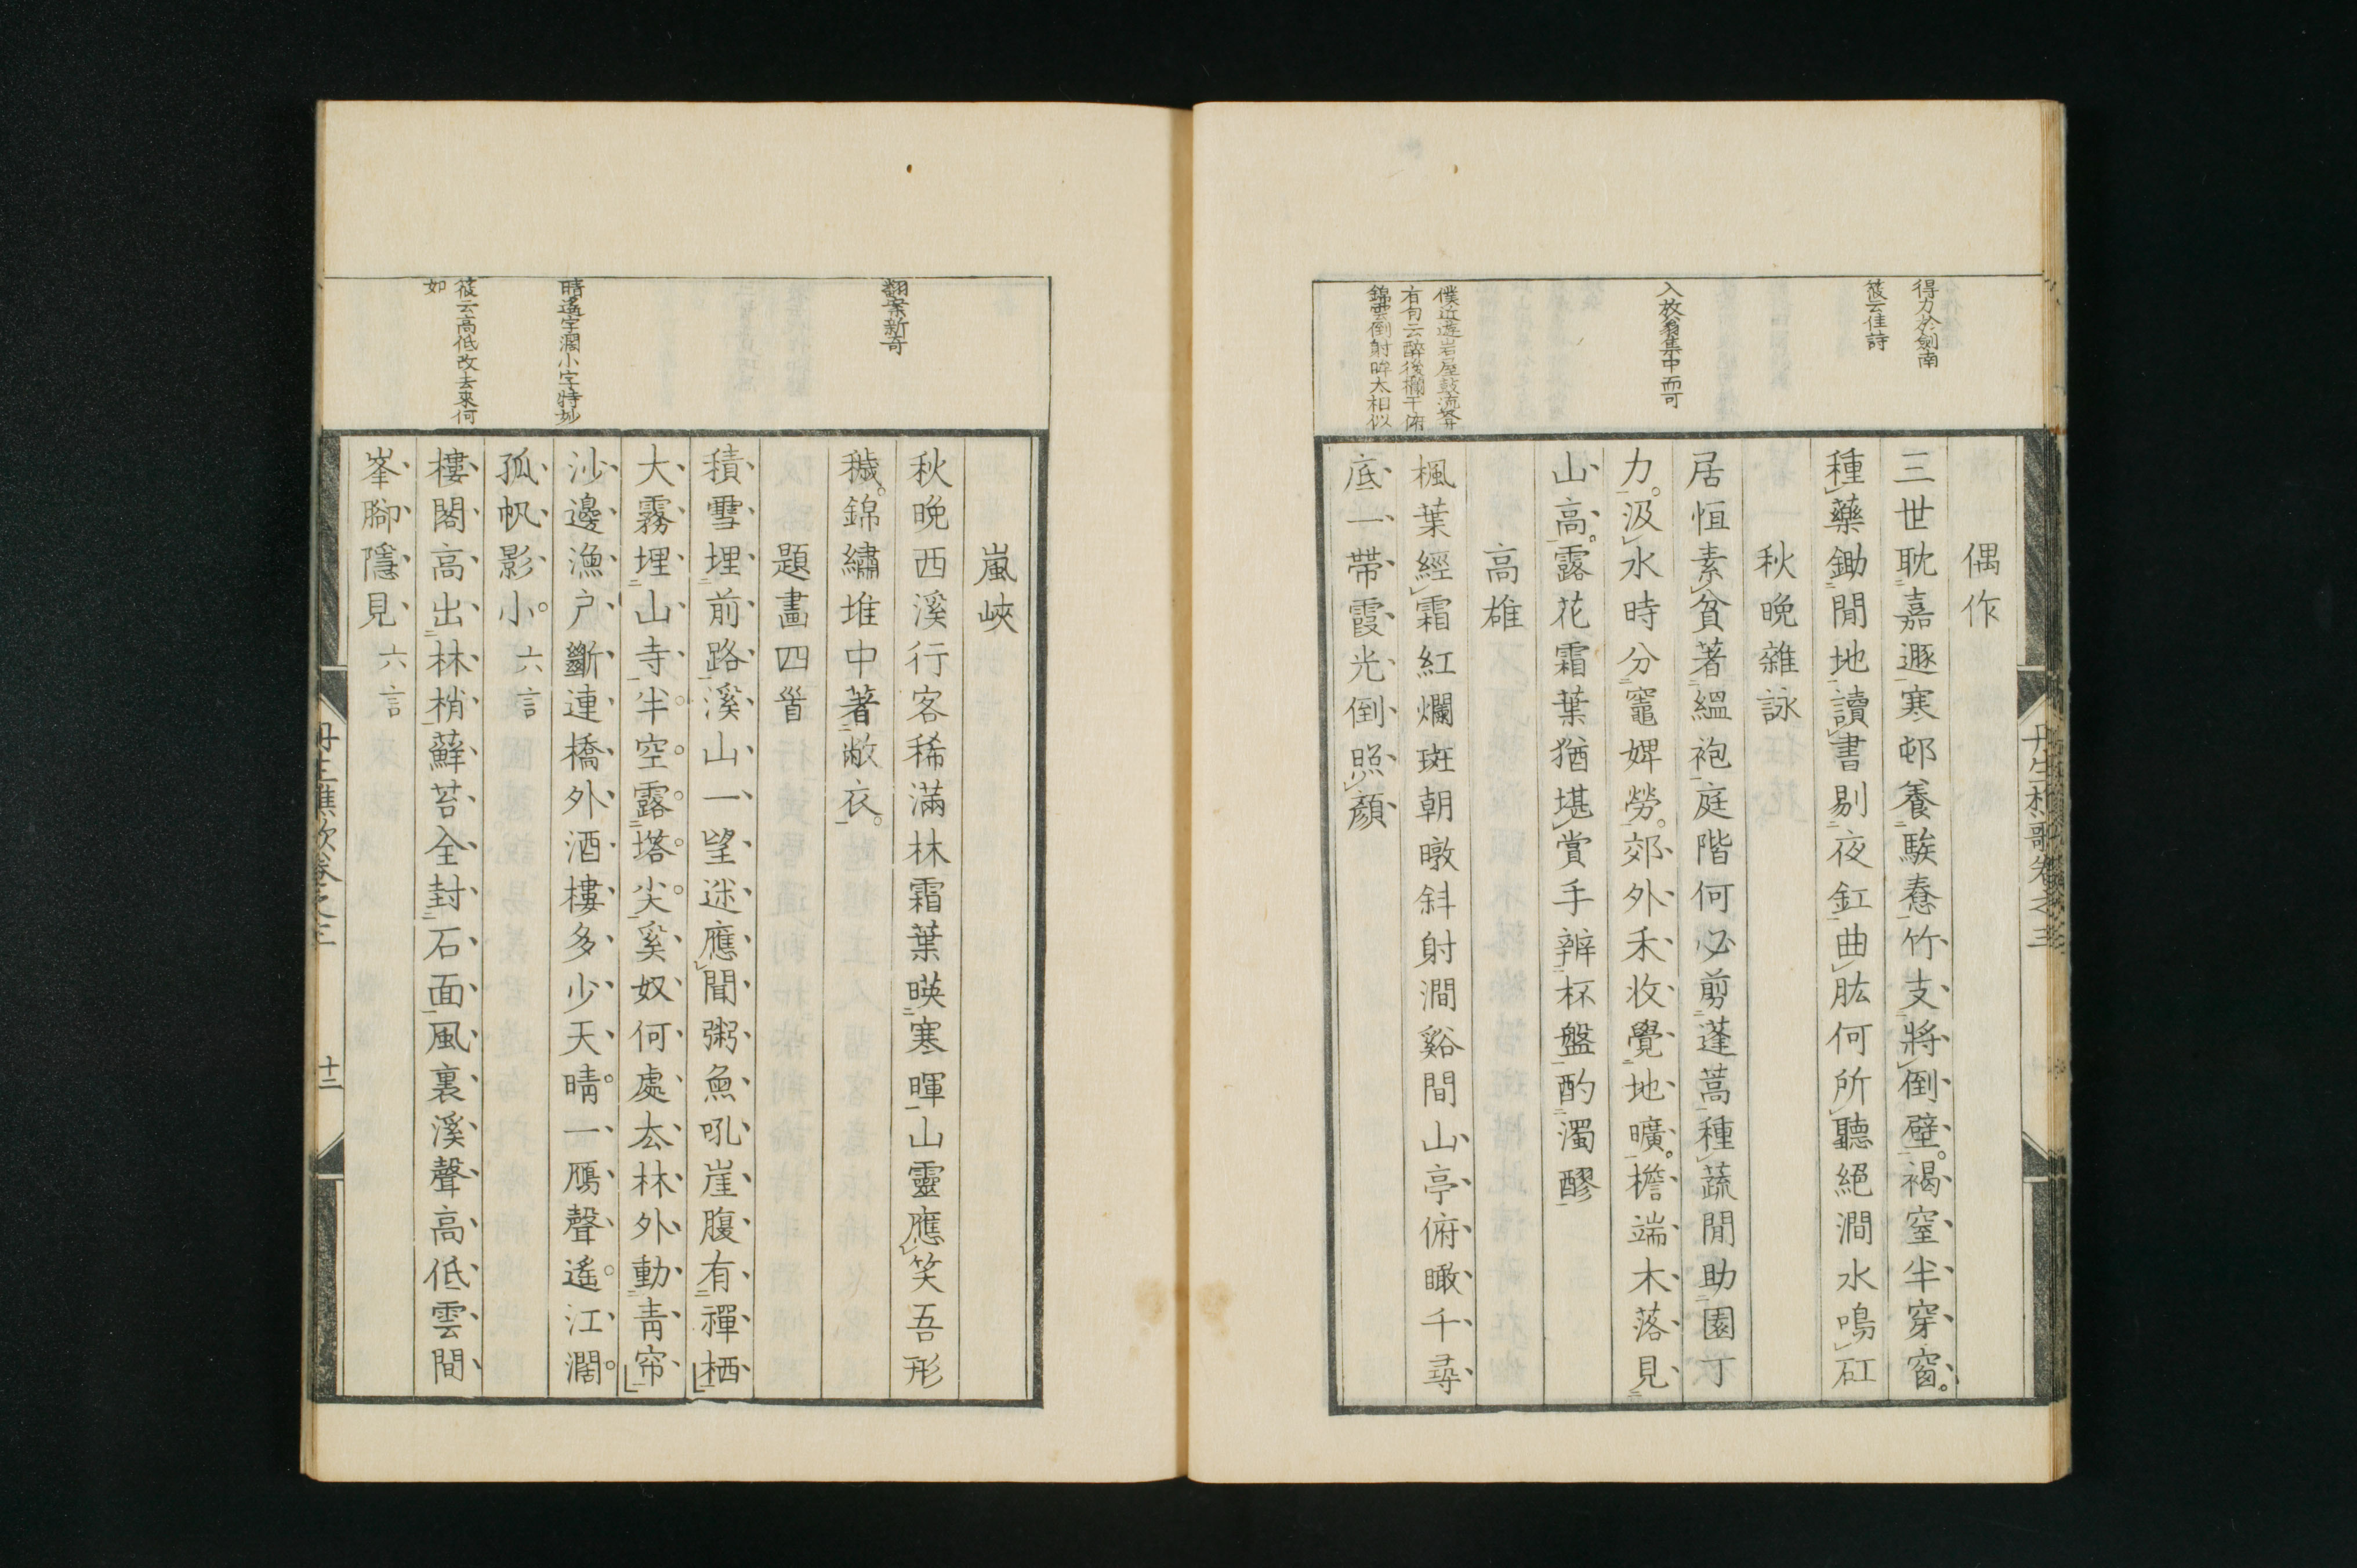 得力於劍南
筱云佳詩
入放翁集中而可
僕近遊岩屋鼓流峯
右句云醉後欄干俯
錦雲倒射眸太相似
偶作
三世耽嘉遯寒邨養騃惷竹支將倒壁褐窒半穿窗
種藥鋤閒地讀書剔夜釭曲肱何所聽絕澗水鳴矼
秋晚雜詠
居恒素貧著縕袍庭階何必剪蓬蒿種蔬閒助園丁
力汲水時分竈婢勞郊外禾收覺地曠檐端木落見
山高露花霜葉猶堪賞手辨杯盤酌濁醪
高雄
楓葉經霜紅爛斑朝暾斜射澗谿間山亭俯瞰千尋
底一帶霞光倒照顏
翻案新奇
晴遙字濶小字特妙
筱云高低改去來何
如
嵐峽
秋晚西溪行客稀滿林霜葉暎寒暉山靈應笑吾形
穢錦繡堆中著敝衣
題畫四首
積雪埋前路溪山一望迷應聞粥魚吼崖腹有禪栖
大霧埋山寺半空露塔尖奚奴何處去林外動青帘
沙邊漁戶斷連橋外酒樓多少天晴一鴈聲遙江濶
孤帆影小 六言
樓閣高出林梢蘚苔全封石面風裏溪聲高低雲間
峯腳隱見 六言
丹生樵歌卷之三
十二